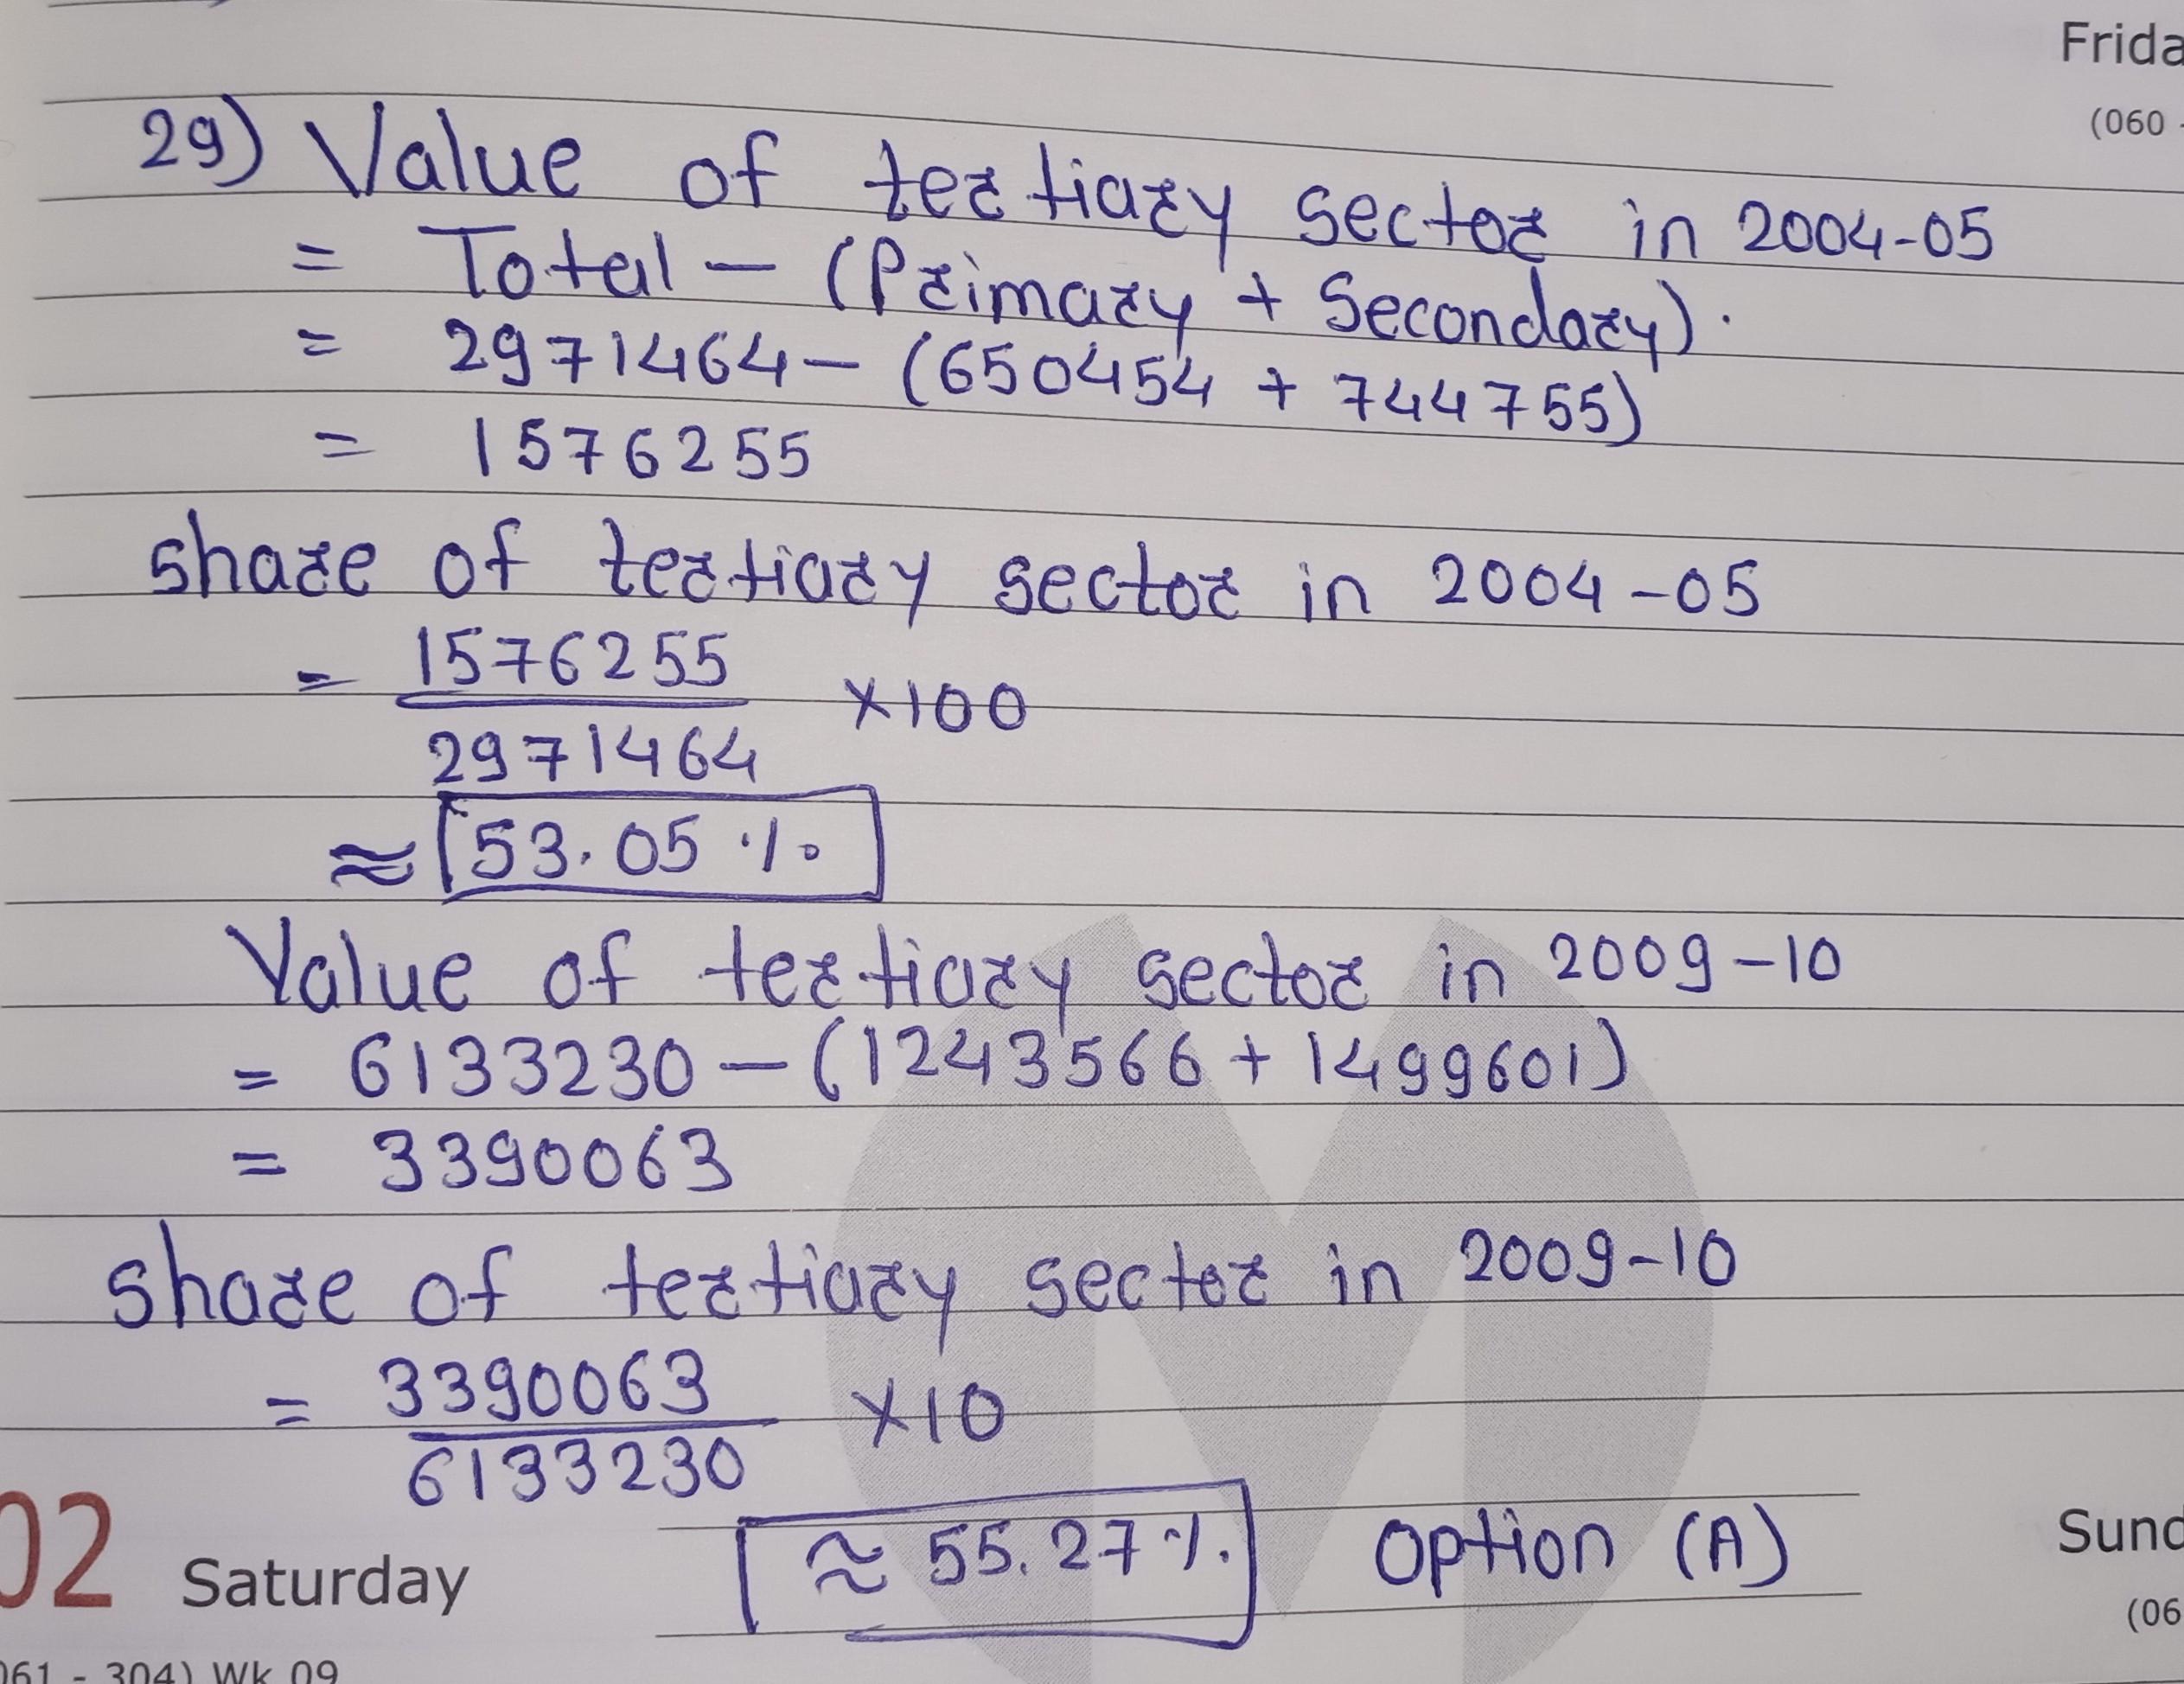 Frida
(060 -
29) Value of tertiary sector in 2004-05
= Total - (Primary + Secondary).
= 2971464 - (650454 + 744755)
= 1576255
share of tertiary sector in 2004-05
= 1576255 / 2971464 ×100
≈ 53.05 %
Value of tertiary sector in 2009-10
= 6133230 - (1243566 + 1499601)
= 3390063
share of tertiary sector in 2009-10
= 3390063 / 6133230 ×10
≈ 55.27 % Option (A)
02 Saturday
Sund
(06
061 - 304) Wk 09